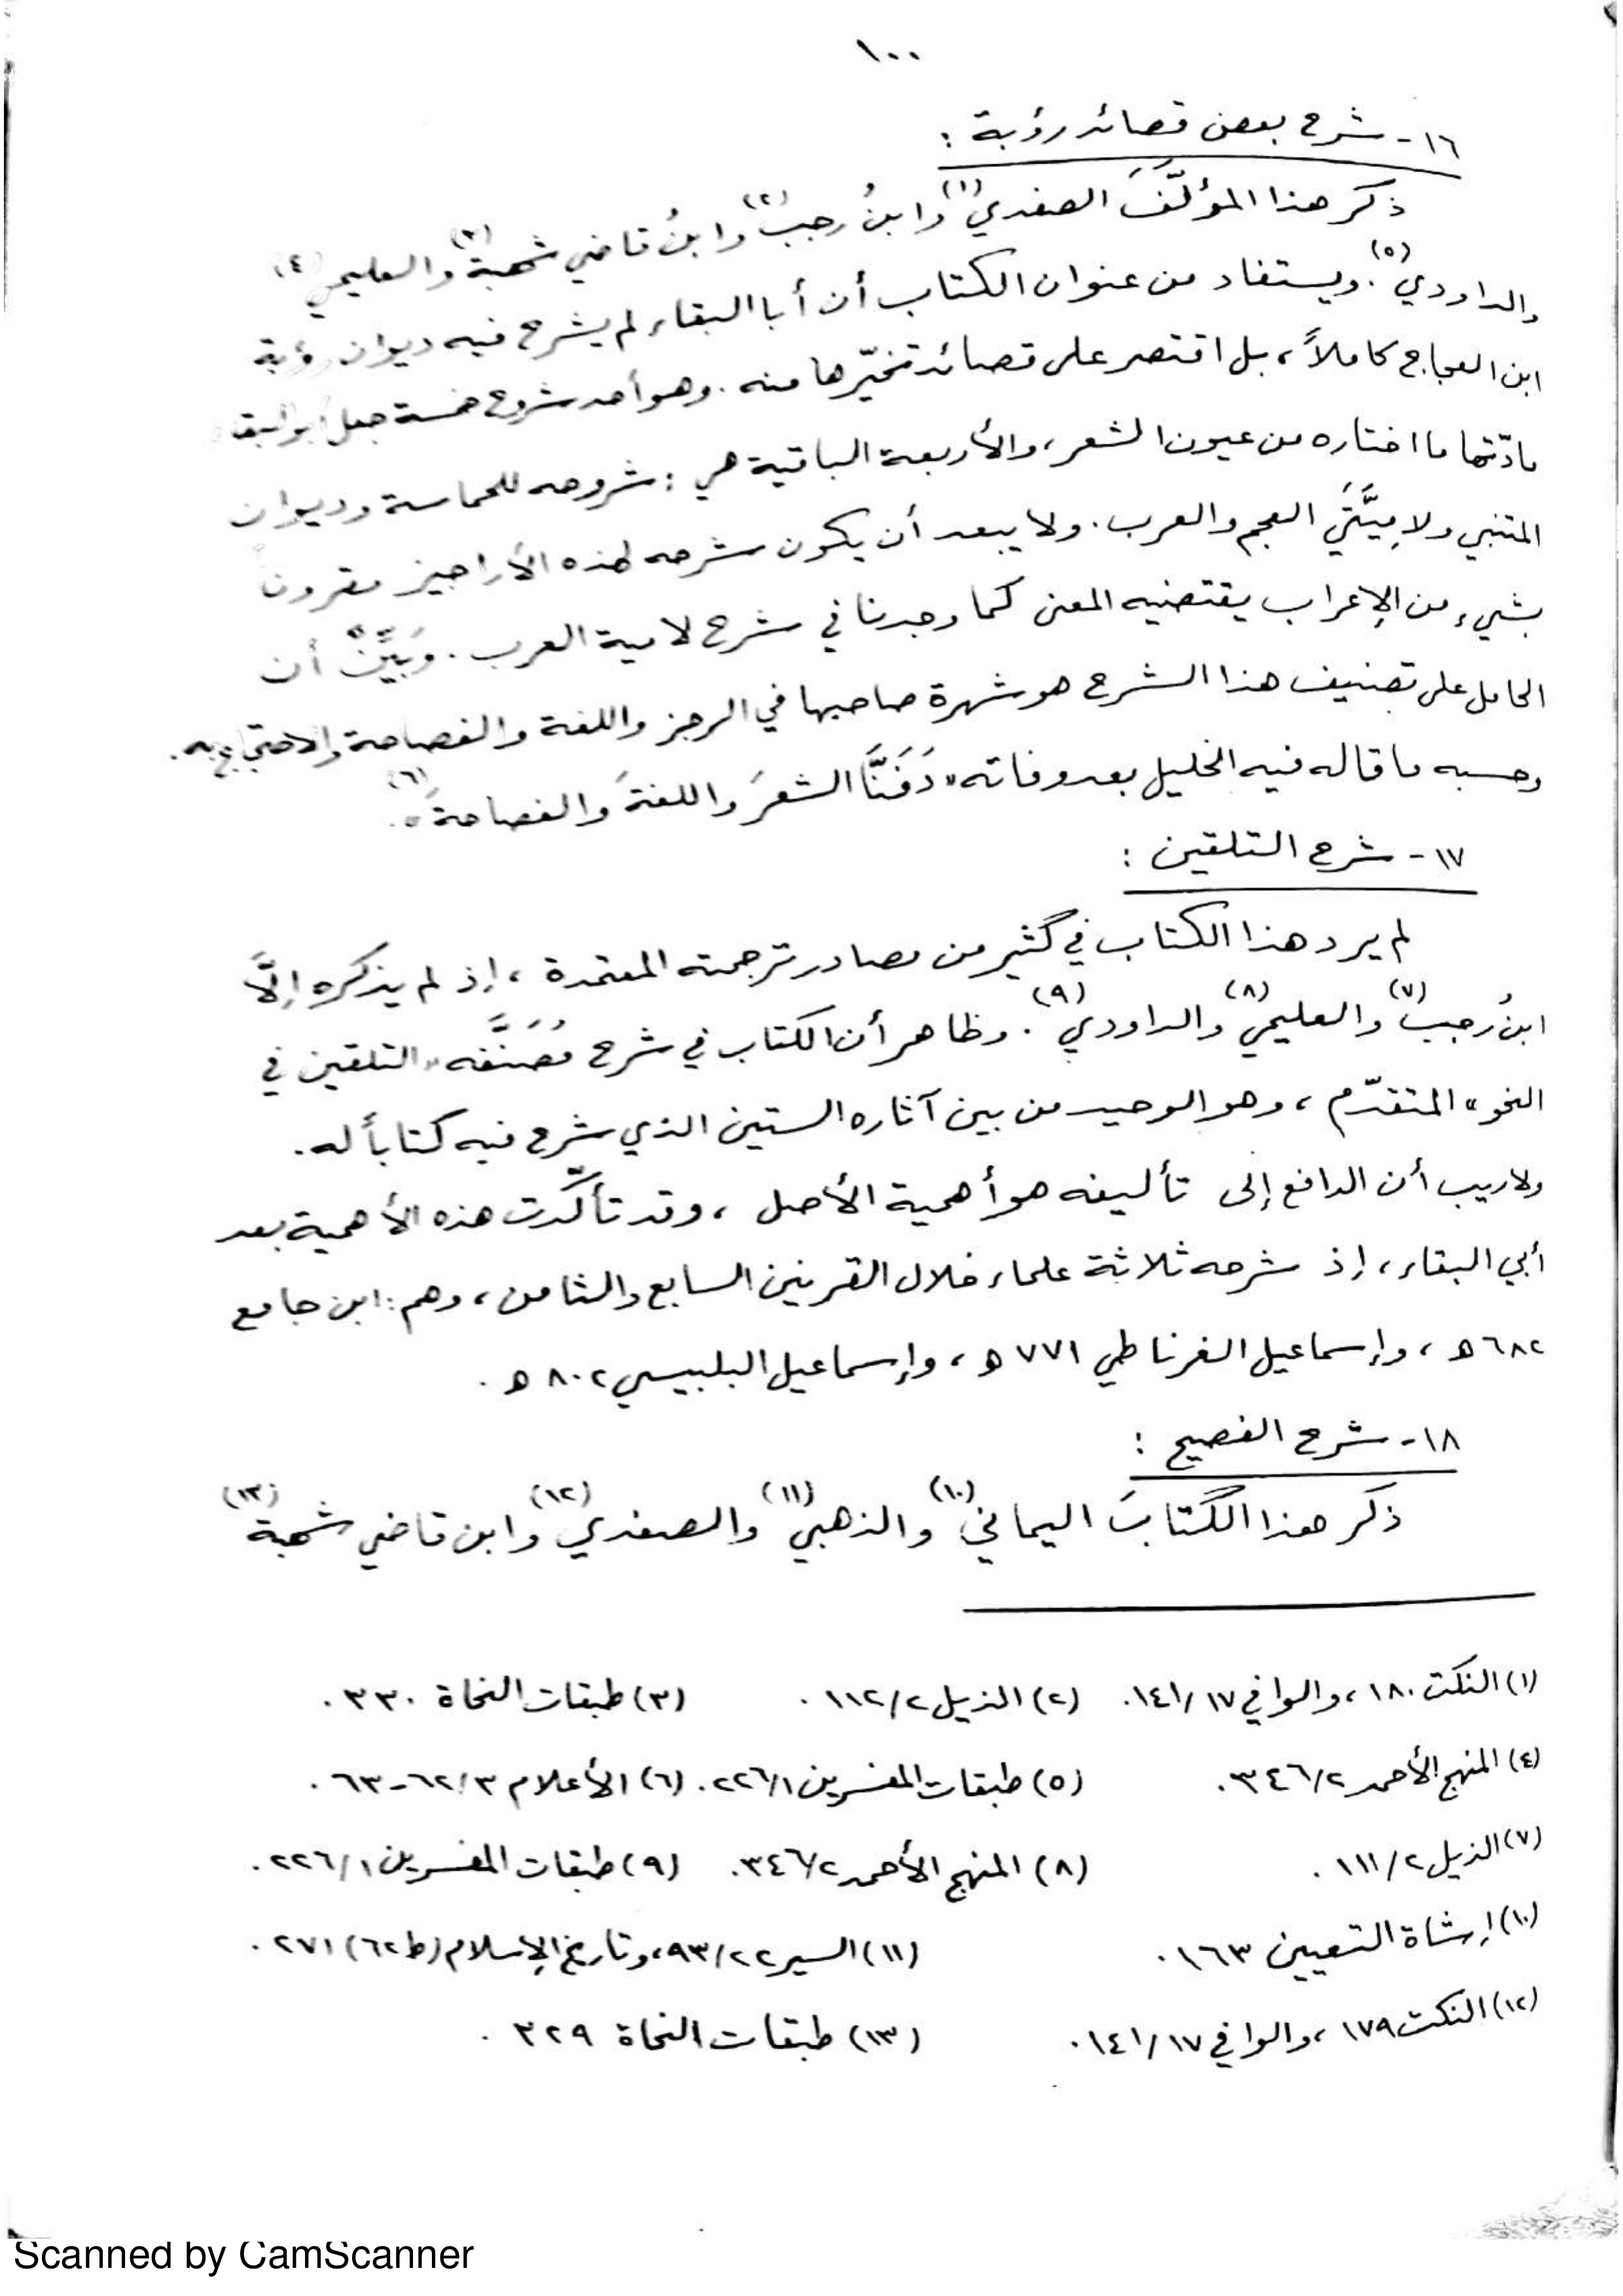 ١٠٠
١٦- شرح بعض قصائد رؤبة :
ذكر هذا المؤلَّفَ الصفدي(١) وابنُ رجب(٢) وابنُ قاضي شهبة(٣) والعليمي(٤)
والداودي(٥). ويستفاد من عنوان الكتاب أن أبا البقاء لم يشرح فيه ديوان رؤبة
ابن العجاج كاملاً، بل اقتصر على قصائد تخيّرها منه. وهو أحد شروح خمسة جعل أبو البقاء
مادّتها ما اختاره من عيون الشعر، والأربعة الباقية هي : شروحه للحماسة وديوان
المتنبي ولامِيَّتَي العجم والعرب. ولا يبعد أن يكون شرحه لهذه الأراجيز مقروناً
بشيء من الإعراب يقتضيه المعنى كما وجدنا في شرح لامية العرب. وَبَيِّنٌ أن
الحامل على تصنيف هذا الشرح هو شهرة صاحبها في الرجز واللغة والفصاحة والاحتجاج به.
وحسبه ما قاله فيه الخليل بعد وفاته «دَفَنَّا الشعرَ واللغةَ والفصاحةَ»(٦).
١٧- شرح التلقين :
لم يرد هذا الكتاب في كثير من مصادر ترجمته المعتمدة ، إذ لم يذكره إلَّا
ابنُ رجب(٧) والعليمي(٨) والداودي(٩). وظاهر أن الكتاب في شرح مُصَنَّفه «التلقين في
النحو» المتقدّم ، وهو الوحيد من بين آثاره الستين الذي شرح فيه كتاباً له.
ولاريب أن الدافع إلى تأليفه هو أهمية الأصل ، وقد تأكّدت هذه الأهمية بعد
أبي البقاء، إذ شرحه ثلاثة علماء خلال القرنين السابع والثامن ، وهم : ابن جامع
٦٨٢ ھ ، وإسماعيل الغرناطي ٧٧١ ھ ، وإسماعيل البلبيسي ٨٠٢ ھ .
١٨- شرح الفصيح :
ذكر هذا الكتابَ اليماني(١٠) والذهبي(١١) والصفدي(١٢) وابن قاضي شهبة(١٣)
(١) النكت ١٨٠ ، والوافي ١٤١/١٧. (٢) الذيل ١١٢/٢ . (٣) طبقات النحاة ٣٣٠ .
(٤) المنهج الأحمد ٣٤٦/٢. (٥) طبقات المفسرين ٢٢٦/١. (٦) الأعلام ٦٢/٣-٦٣ .
(٧) الذيل ١١١/٢ . (٨) المنهج الأحمد ٣٤٦/٢. (٩) طبقات المفسرين ٢٢٦/١ .
(١٠) إشارة التعيين ١٦٣ . (١١) السير ٩٣/٢٢، وتاريخ الإسلام (ط٦٢) ٢٧١ .
(١٢) النكت ١٧٩ ، والوافي ١٤١/١٧ . (١٣) طبقات النحاة ٣٢٩ .
Scanned by CamScanner